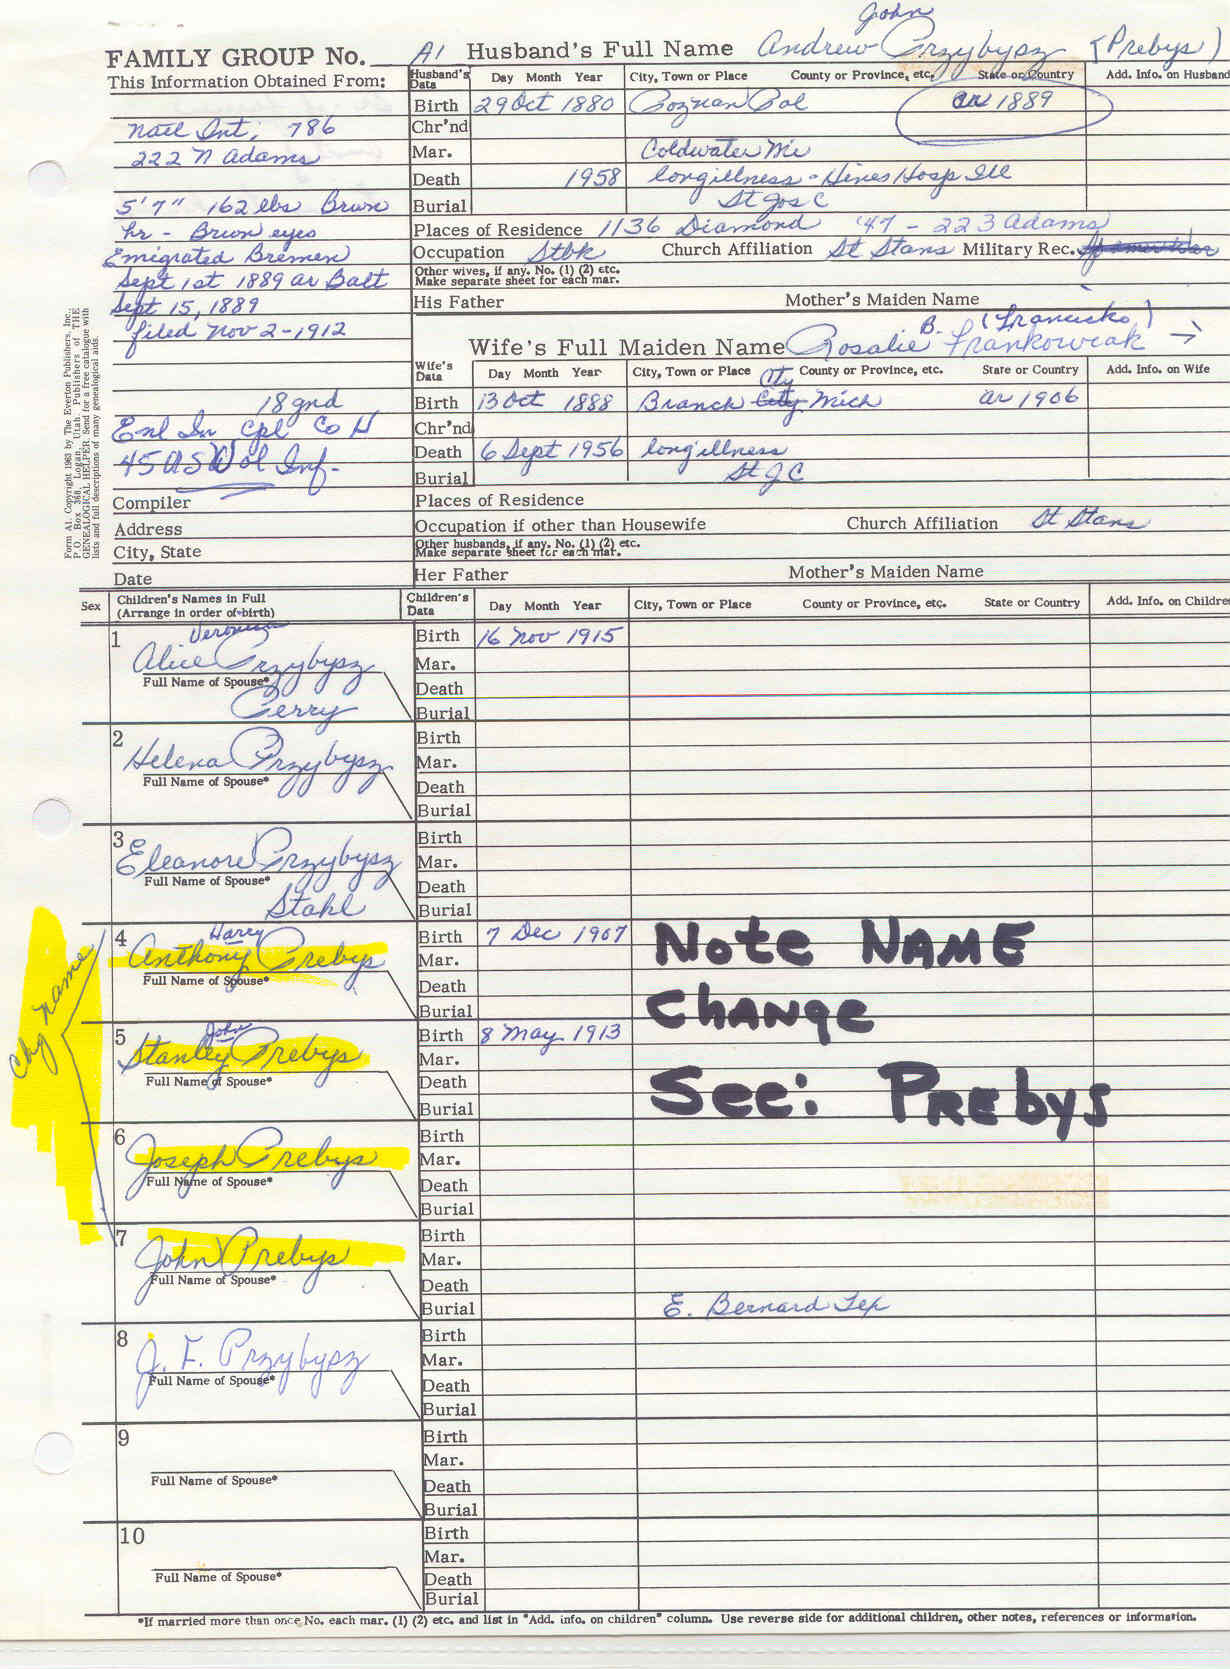 John
FAMILY GROUP No. A1 Husband's Full Name Andrew Przybysz (Prebys)
This Information Obtained From:
Husband's Data Day Month Year City, Town or Place County or Province, etc. State or Country Add. Info. on Husband
Birth 29 Oct 1880 Poznan Pol ar 1889
Natl Int, 786
Chr'nd
222 N Adams
Mar. Coldwater Mi
Death 1958 long illness - Hines Hosp Ill
5'7" 162 lbs Brwn
Burial St Jos C
hr - Brwn eyes
Places of Residence 1136 Diamond '47 - 223 Adams
Emigrated Bremen
Occupation Stbk Church Affiliation St Stans Military Rec.
Sept 1st 1889 ar Balt
Other wives, if any. No. (1) (2) etc.
Make separate sheet for each mar.
Sept 15, 1889
His Father Mother's Maiden Name
filed Nov 2-1912
B. (Francisko)
Wife's Full Maiden Name Rosalie Frankowiak →
Wife's Data Day Month Year City, Town or Place County or Province, etc. State or Country Add. Info. on Wife
Cty
18 gnd
Birth 13 Oct 1888 Branch City Mich ar 1906
Enl In Cpl Co H
Chr'nd
45 US Vol Inf-
Death 6 Sept 1956 long illness
Burial St J C
Compiler
Places of Residence
Address
Occupation if other than Housewife Church Affiliation St Stans
City, State
Other husbands, if any. No. (1) (2) etc.
Make separate sheet for each mar.
Date
Her Father Mother's Maiden Name
Form A1. Copyright 1963 by The Everton Publishers, Inc.,
P.O. Box 368, Logan, Utah. Publishers of THE
GENEALOGICAL HELPER. Send for a free catalogue with
lists and full descriptions of many genealogical aids.
Sex Children's Names in Full
(Arrange in order of birth)
Children's Data Day Month Year City, Town or Place County or Province, etc. State or Country Add. Info. on Children
1 Veronica
Alice Przybysz
Full Name of Spouse*
Perry
Birth 16 Nov 1915
Mar.
Death
Burial
2
Helena Przybysz
Full Name of Spouse*
Birth
Mar.
Death
Burial
3
Eleanore Przybysz
Full Name of Spouse*
Stahl
Birth
Mar.
Death
Burial
chg name
4 Harry
Anthony Prebys
Full Name of Spouse*
Birth 7 Dec 1907
Mar.
Death
Burial
Note NAME
CHANge
See: PRebys
5 John
Stanley Prebys
Full Name of Spouse*
Birth 8 May 1913
Mar.
Death
Burial
6
Joseph Prebys
Full Name of Spouse*
Birth
Mar.
Death
Burial
7
John Prebys
Full Name of Spouse*
Birth
Mar.
Death
Burial E. Bernard Tep
8
J. F. Przybysz
Full Name of Spouse*
Birth
Mar.
Death
Burial
9
Full Name of Spouse*
Birth
Mar.
Death
Burial
10
Full Name of Spouse*
Birth
Mar.
Death
Burial
*If married more than once No. each mar. (1) (2) etc. and list in "Add. info. on children" column. Use reverse side for additional children, other notes, references or information.